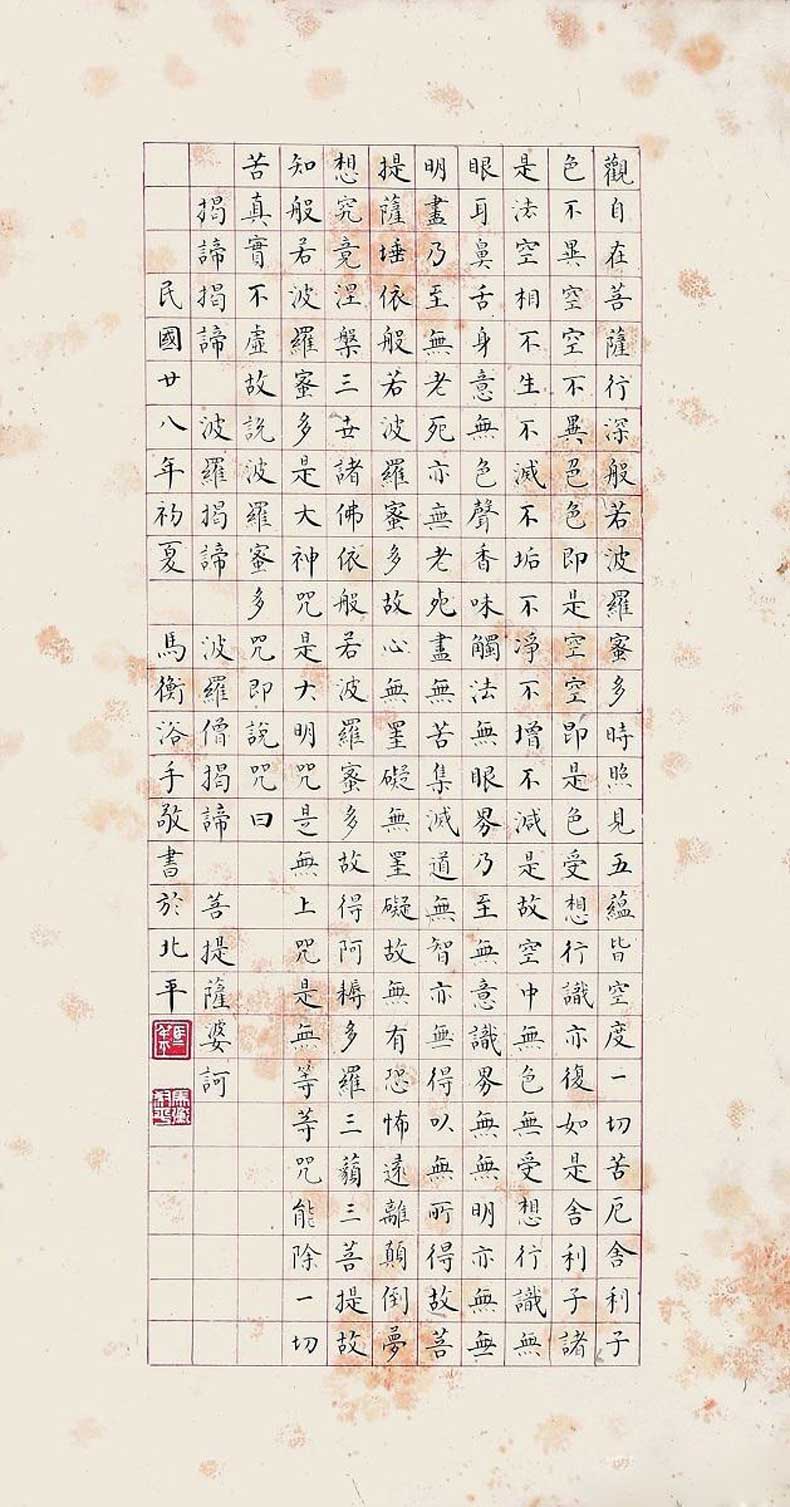 觀自在菩薩行深般若波羅蜜多時照見五蘊皆空度一切苦厄舍利子
色不異空空不異色色即是空空即是色受想行識亦復如是舍利子諸
是法空相不生不滅不垢不淨不增不減是故空中無色無受想行識無
眼耳鼻舌身意無色聲香味觸法無眼界乃至無意識界無無明亦無無
明盡乃至無老死亦無老死盡無苦集滅道無智亦無得以無所得故菩
提薩埵依般若波羅蜜多故心無罣礙無罣礙故無有恐怖遠離顛倒夢
想究竟涅槃三世諸佛依般若波羅蜜多故得阿耨多羅三藐三菩提故
知般若波羅蜜多是大神咒是大明咒是無上咒是無等等咒能除一切
苦真實不虛故說波羅蜜多咒即說咒曰
揭諦揭諦 波羅揭諦 波羅僧揭諦 菩提薩婆訶
民國廿八年初夏 馬衡浴手敬書於北平